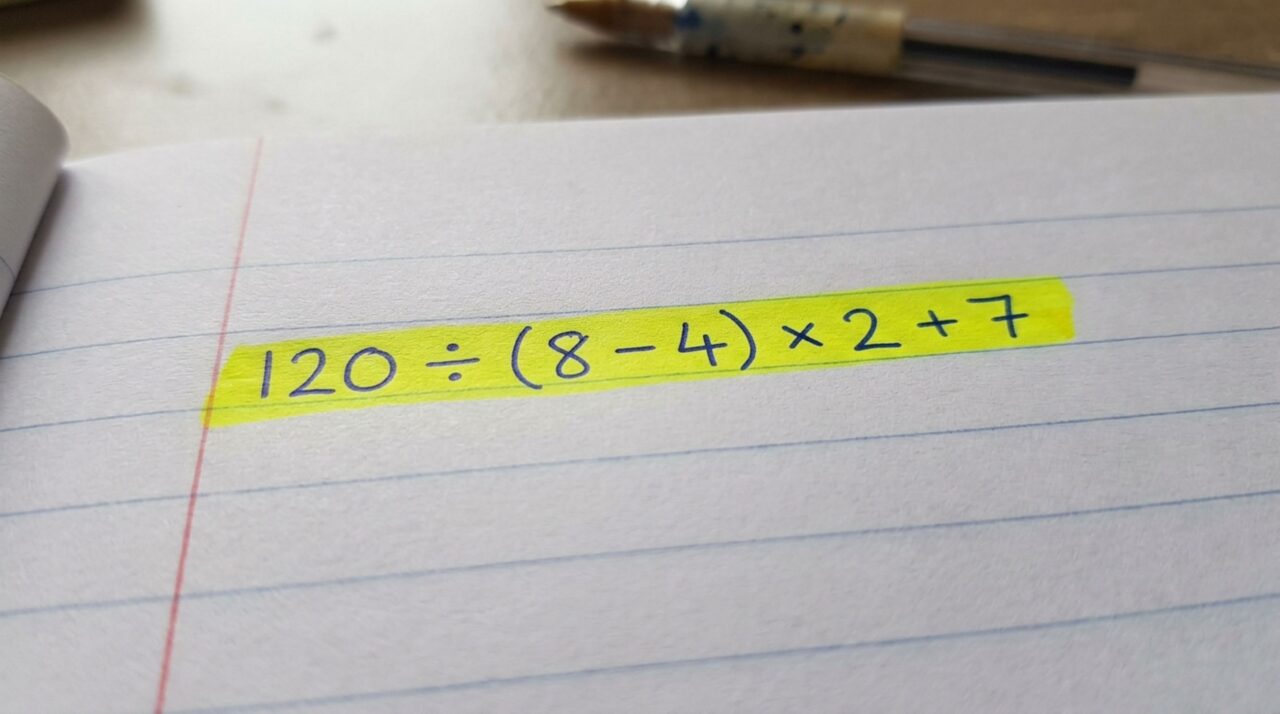 120 ÷ (8 − 4) × 2 + 7